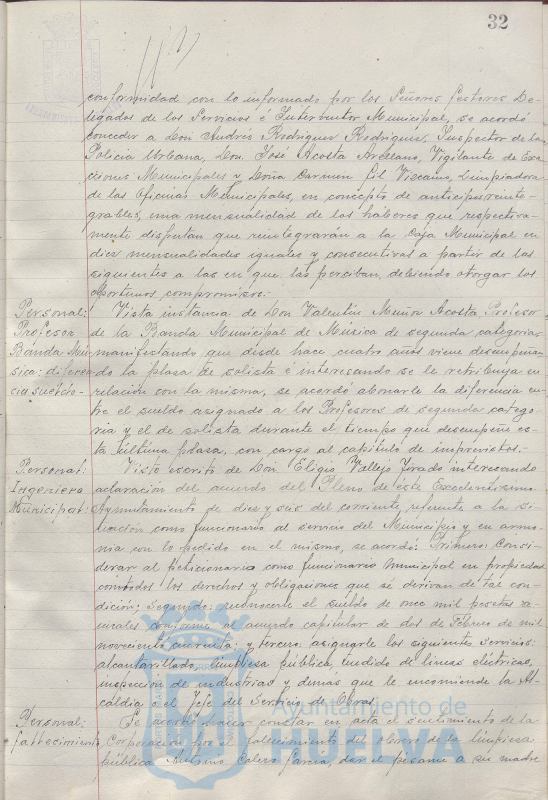 32
conformidad con lo informado por los Señores Gestores De-
legados de los Servicios é Interventor Municipal, se acordó
conceder a Don Andrés Rodriguez Rodriguez, Inspector de la
Policia Urbana, Don José Acosta Arellano, Vigilante de Exac-
ciones Municipales y Doña Carmen Gil Vizcaino, Limpiadora
de las Oficinas Municipales, en concepto de anticipo reinte-
grables, una mensualidad de los haberes que respectiva-
mente disfrutan que reintegrarán a la Caja Municipal en
diez mensualidades iguales y consecutivas a partir de los
siguientes a las en que las perciban, debiendo otorgar los
oportunos compromisos.
Personal: Profesor Banda Mú-sica: diferen-cia sueldo.-
Vista instancia de Don Valentin Muñoz Acosta, Profesor
de la Banda Municipal de Música de segunda categoria
manifestando que desde hace cuatro años viene desempeñan-
do la plaza de solista é interesando se le retribuya en
relación con la misma, se acordó abonarle la diferencia en-
tre el sueldo asignado a los Profesores de segunda catego-
ria y el de solista durante el tiempo que desempeñe es-
ta última plaza, con cargo al capítulo de imprevistos.-
Personal: Ingeniero Municipal:
Visto escrito de Don Eligio Vallejo Jurado interesando
aclaración del acuerdo del Pleno de este Excelentísimo
Ayuntamiento de diez y seis del corriente, referente a la si-
tuación como funcionario al servicio del Municipio y en armo-
nia con lo pedido en el mismo, se acordó: Primero: Consi-
derar al peticionario como funcionario municipal en propiedad
con todos los derechos y obligaciones que se derivan de tal con-
dición; segundo: reconocerle el sueldo de once mil pesetas a-
nuales conforme al acuerdo capitular de dos de Febrero de mil
novecientos cuarenta; y tercero: asignarle los siguientes servicios:
alcantarillado, limpieza pública, tendido de lineas eléctricas,
inspección de industrias y demas que le encomiende la Al-
caldia o el Jefe del Servicio de Obras.
Personal: fallecimiento
Se acordó hacer constar en acta el sentimiento de la
Corporación por el fallecimiento del obrero de la limpieza
pública Calero Garcia, dar el pésame a su madre
Ayuntamiento de
HUELVA